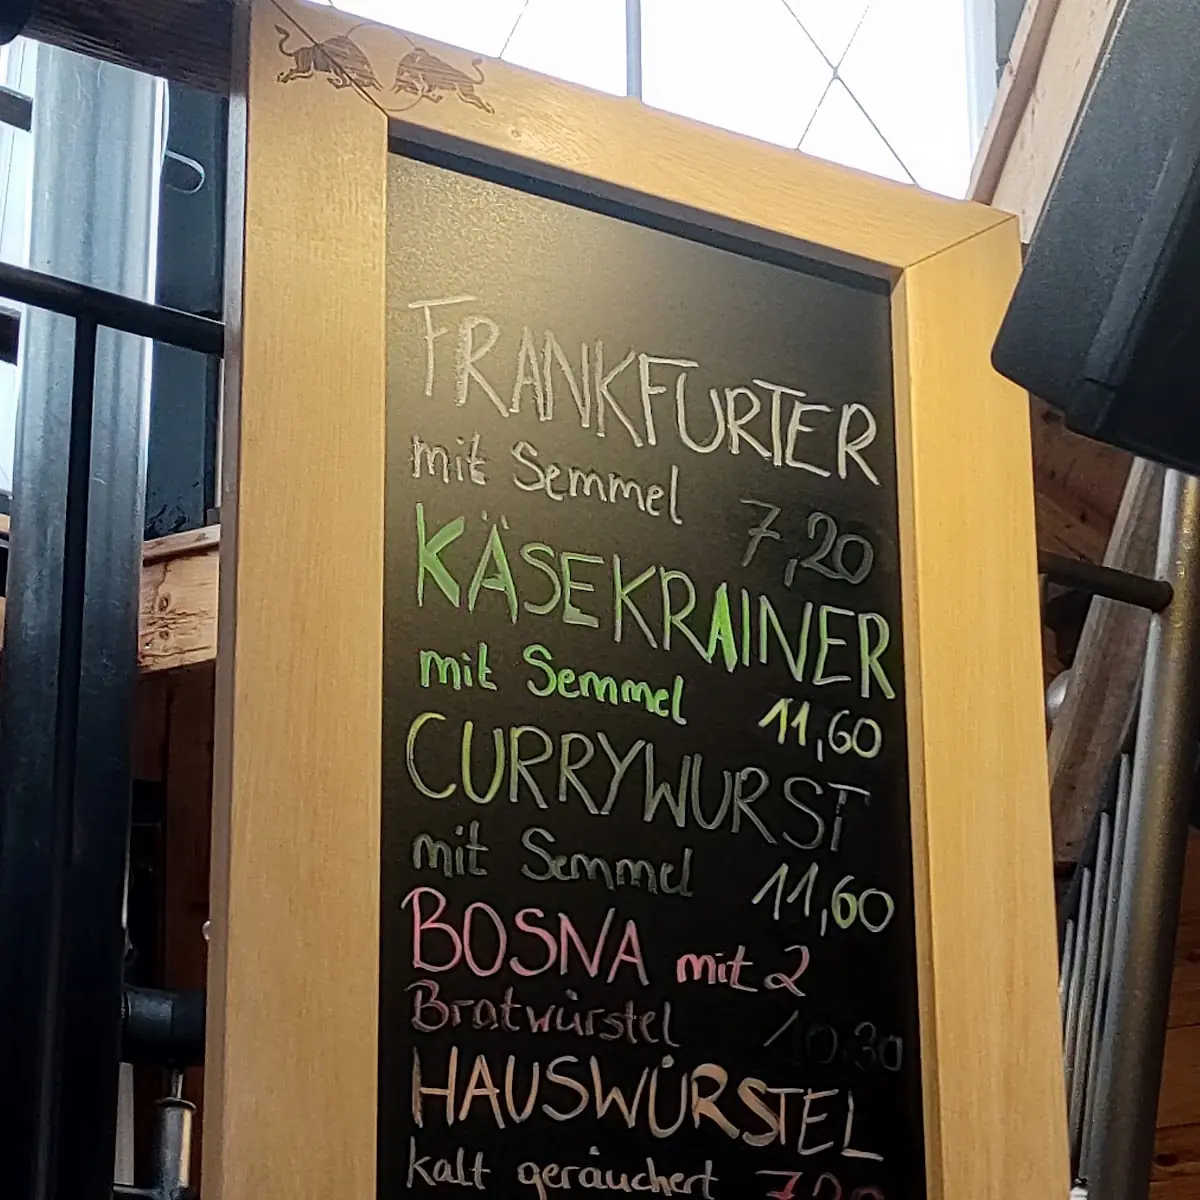 FRANKFURTER
mit Semmel 7,20
KÄSEKRAINER
mit Semmel 11,60
CURRYWURST
mit Semmel 11,60
BOSNA mit 2
Bratwürstel 10.30
HAUSWÜRSTEL
kalt geräuchert